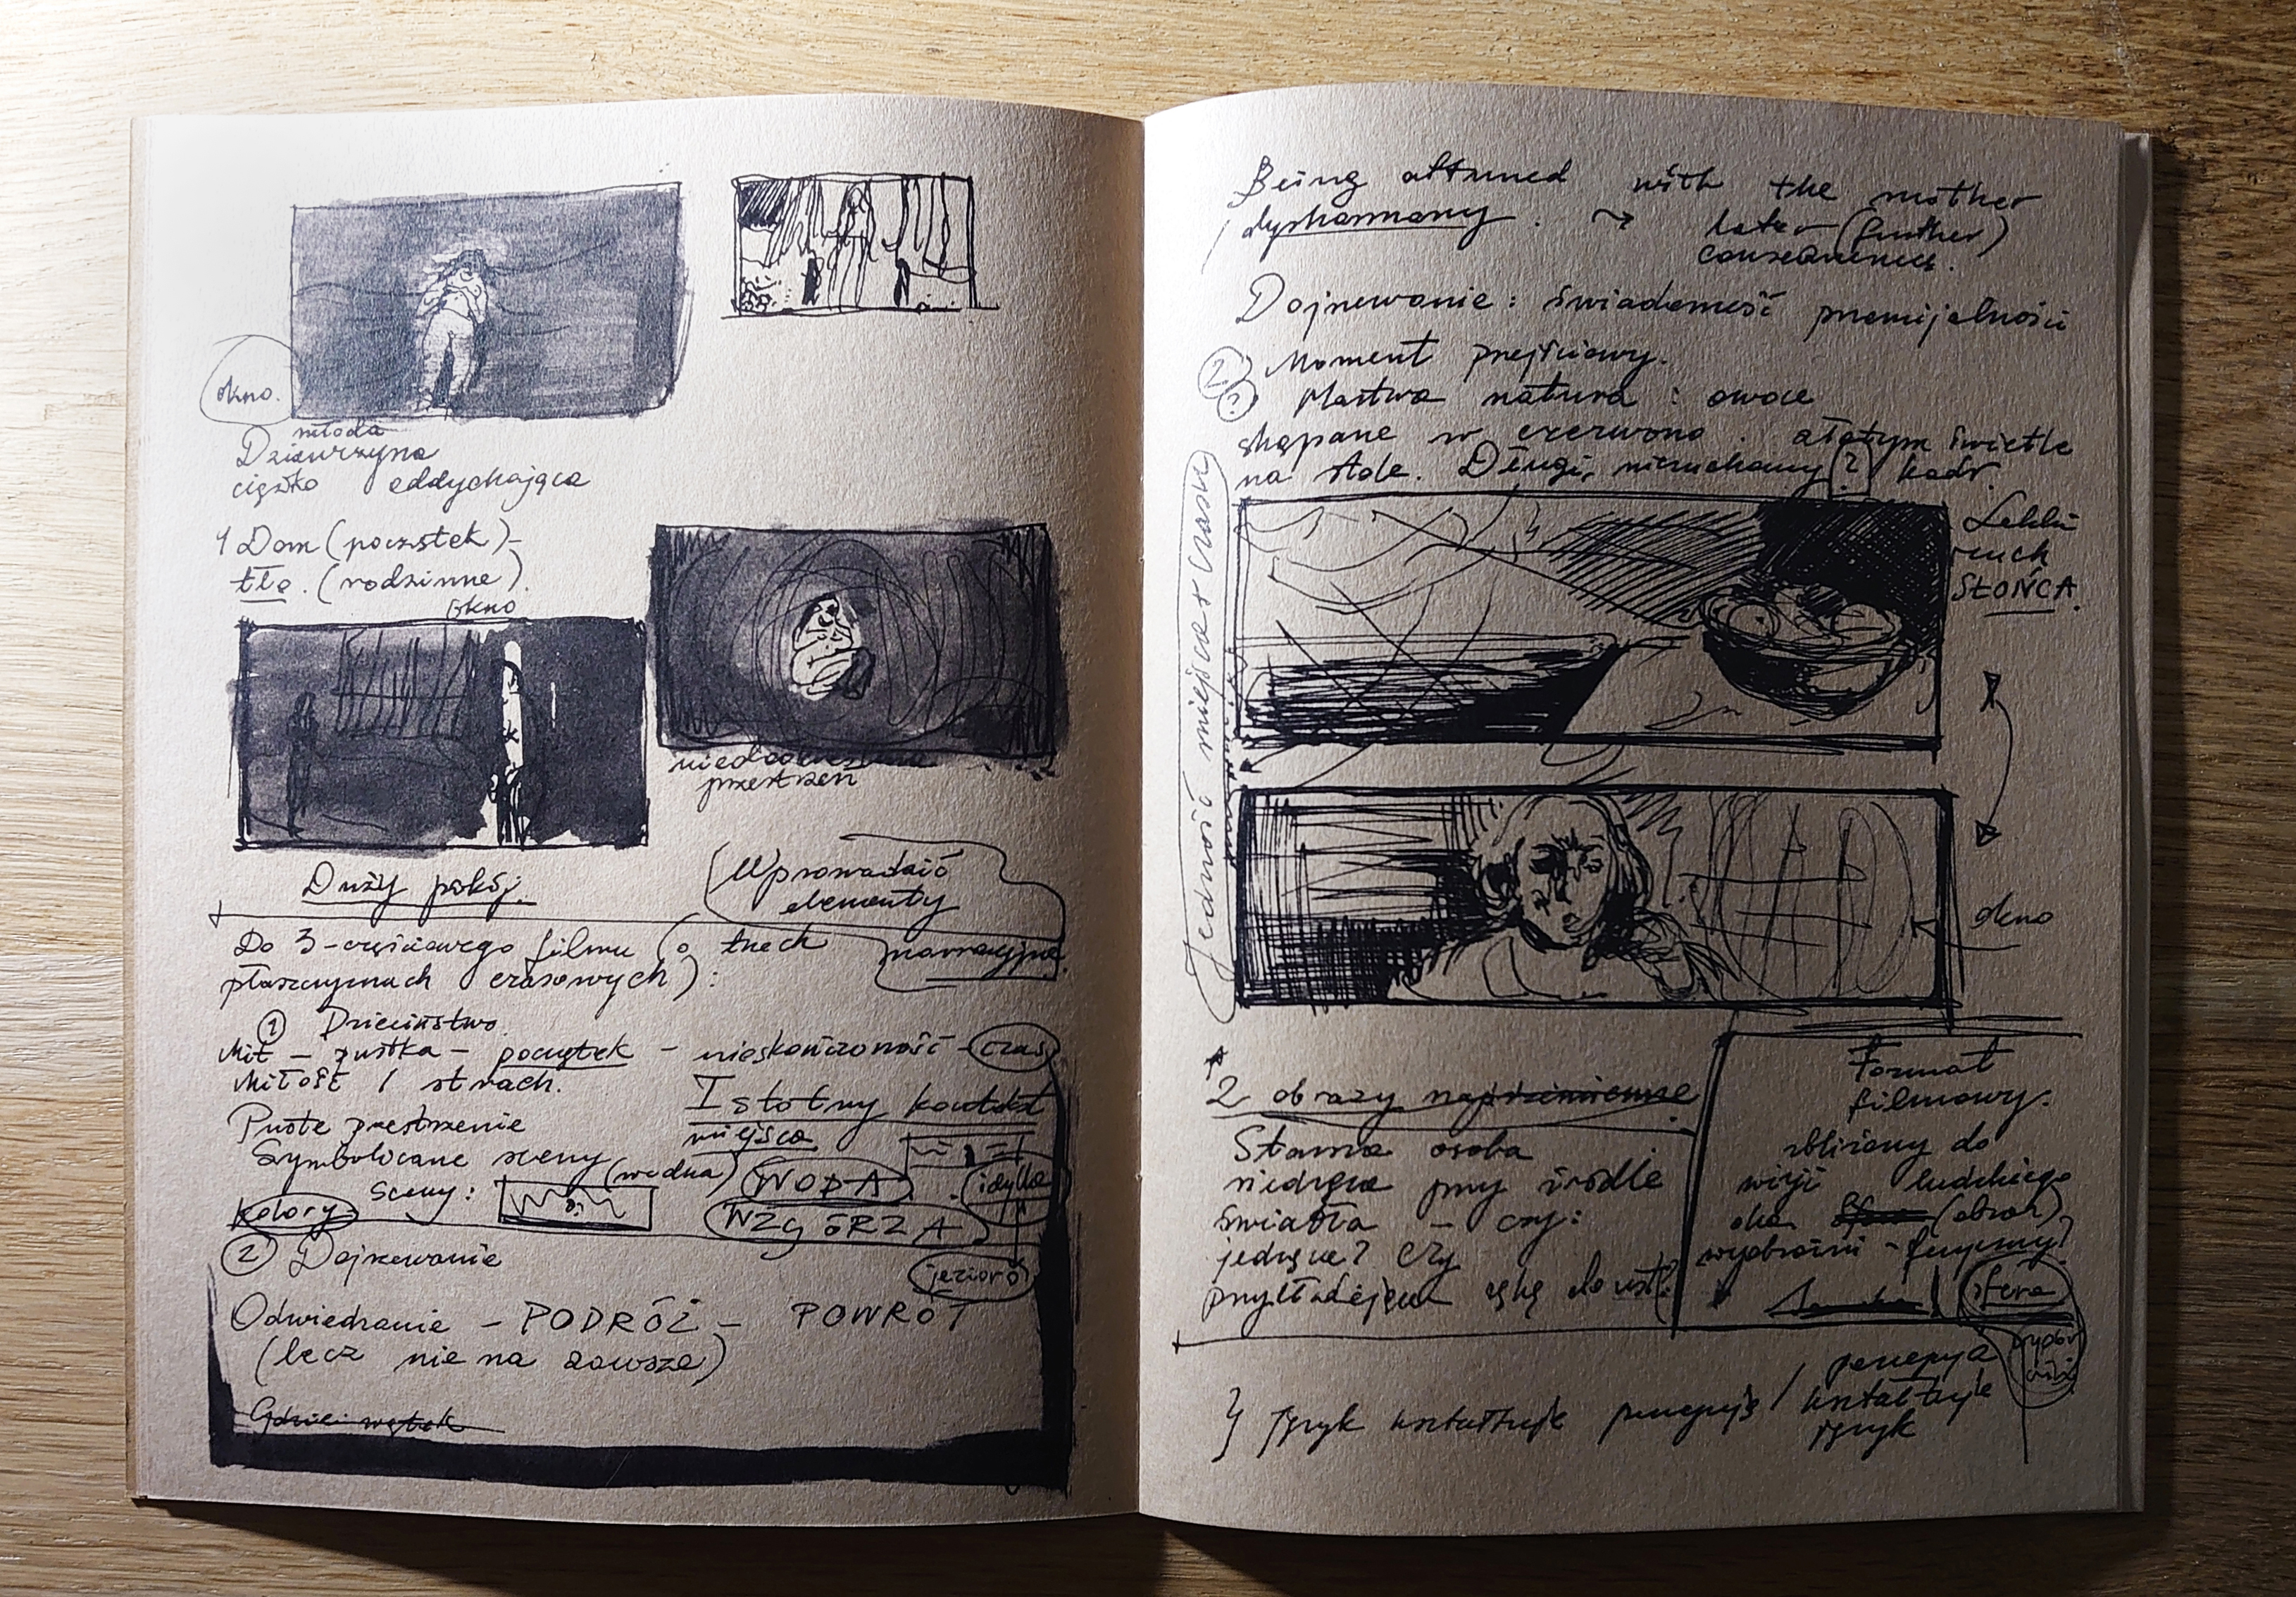 okno.
młoda
Dziewczyna
ciężko oddychająca
1 Dom (początek) –
tło. (rodzinne).
okno
przestrzeń
Duży pokój.
Wprowadzić
elementy
narracyjne.
Do 3-częściowego filmu (o trzech
płaszczyznach czasowych):
① Dzieciństwo
Mit – pustka – początek – nieskończoność – czas
Miłość / strach.
Istotny kontekst
miejsca
Puste przestrzenie
Symboliczne sceny
sceny: (wodna) WODA idylla
kolory WZGÓRZA
② Dojrzewanie
jezioro
Odwiedzanie – PODRÓŻ – POWRÓT
(lecz nie na zawsze)
Gdzie wątek
Being attuned with the mother
dysharmony. → later (further)
consequences.
Dojrzewanie: świadomość przemijalności
② Moment przejściowy.
? Martwa natura: owoce
skąpane w czerwono. złotym świetle
na stole. Długi, nieruchomy ? kadr.
Lekki
ruch
SŁOŃCA.
Jedność miejsca i czasu
okno
2 obrazy naprzemienne
Stara osoba
siedząca przy źródle
światła – czy:
jedząca? Czy
przykładająca rękę do ust?
Format
filmowy.
zbliżony do
wizji ludzkiego
oka (obraz)
wyobraźni –
sfera
język kształtuje percepcję / percepcja
kształtuje
język